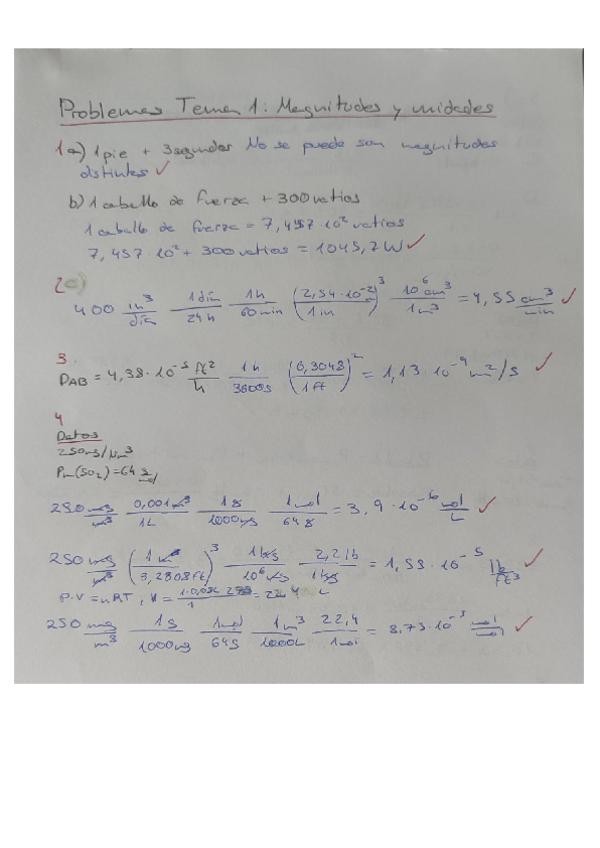 Problemas Tema 1: Magnitudes y unidades
1 a) 1 pie + 3 segundos No se puede son magnitudes
distintas ✓
b) 1 caballo de fuerza + 300 vatios
1 caballo de fuerza = 7,457·10² vatios
7,457·10² + 300 vatios = 1045,7 W ✓
2c)
400 in³/día 1 día/24 h 1 h/60 min (2,54·10⁻²/1 in)³ 10⁶ cm³/1 m³ = 4,55 cm³/min ✓
3.
DAB = 4,38·10⁻⁵ ft²/h 1 h/3600 s (0,3048/1 ft)² = 1,13·10⁻⁹ m²/s ✓
4
Datos
250 mg/Nm³
Pm(SO₂) = 64 g/mol
250 mg/m³ 0,001 m³/1 L 1 g/1000 mg 1 mol/64 g = 3,9·10⁻⁶ mol/L ✓
250 mg/m³ (1 m/3,2808 ft)³ 1 kg/10⁶ mg 2,2 lb/1 kg = 1,55·10⁻⁵ lb/ft³ ✓
P·V = nRT,
250 mg/m³ 1 g/1000 mg 1 mol/64 g 1 m³/1000 L 22,4/1 mol = 8,75·10⁻⁵ mol/mol ✓